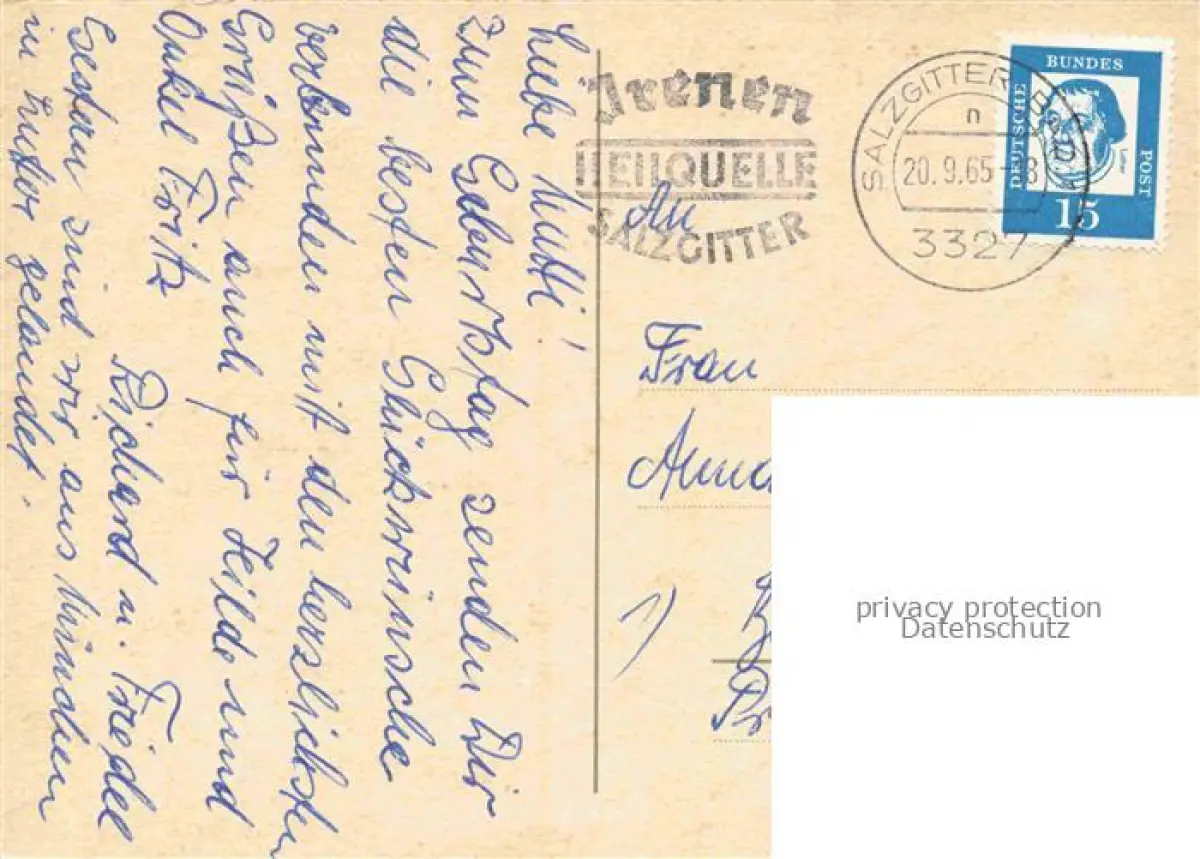 Liebe Mutti!
Zum Geburtstag senden Dir
die besten Glückwünsche
verbunden mit den herzlichsten
Grüßen auch für Heilde und
Onkel Fritz
Richard u. Friedel
Gestern sind wir aus München
in hier gelandet.
Irenen
HEILQUELLE
SALZGITTER
SALZGITTER-Bad
n
20.9.65-8
3327
DEUTSCHE
BUNDES
POST
Luther
15
An
Frau
Anna
1)
privacy protection
Datenschutz